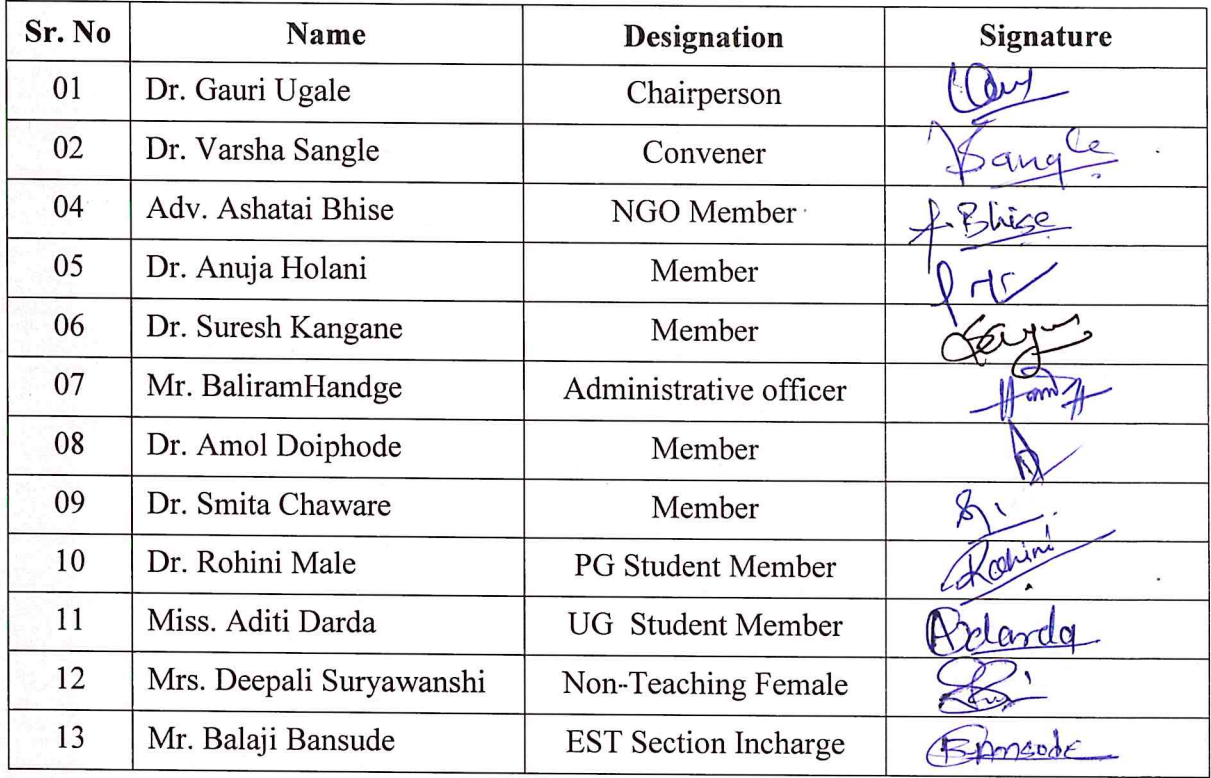 Sr. No Name Designation Signature
01 Dr. Gauri Ugale Chairperson
02 Dr. Varsha Sangle Convener Sangle
04 Adv. Ashatai Bhise NGO Member A. Bhise
05 Dr. Anuja Holani Member
06 Dr. Suresh Kangane Member
07 Mr. BaliramHandge Administrative officer
08 Dr. Amol Doiphode Member
09 Dr. Smita Chaware Member
10 Dr. Rohini Male PG Student Member Rohini
11 Miss. Aditi Darda UG Student Member Adarda
12 Mrs. Deepali Suryawanshi Non-Teaching Female
13 Mr. Balaji Bansude EST Section Incharge Bansode